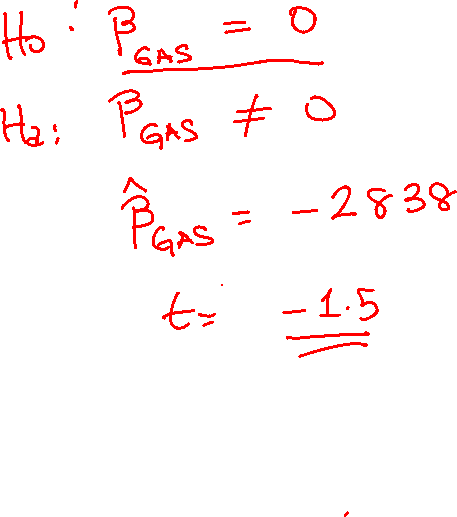 Ho: β_GAS = 0
Ha: β_GAS ≠ 0
β̂_GAS = -2838
t = -1.5